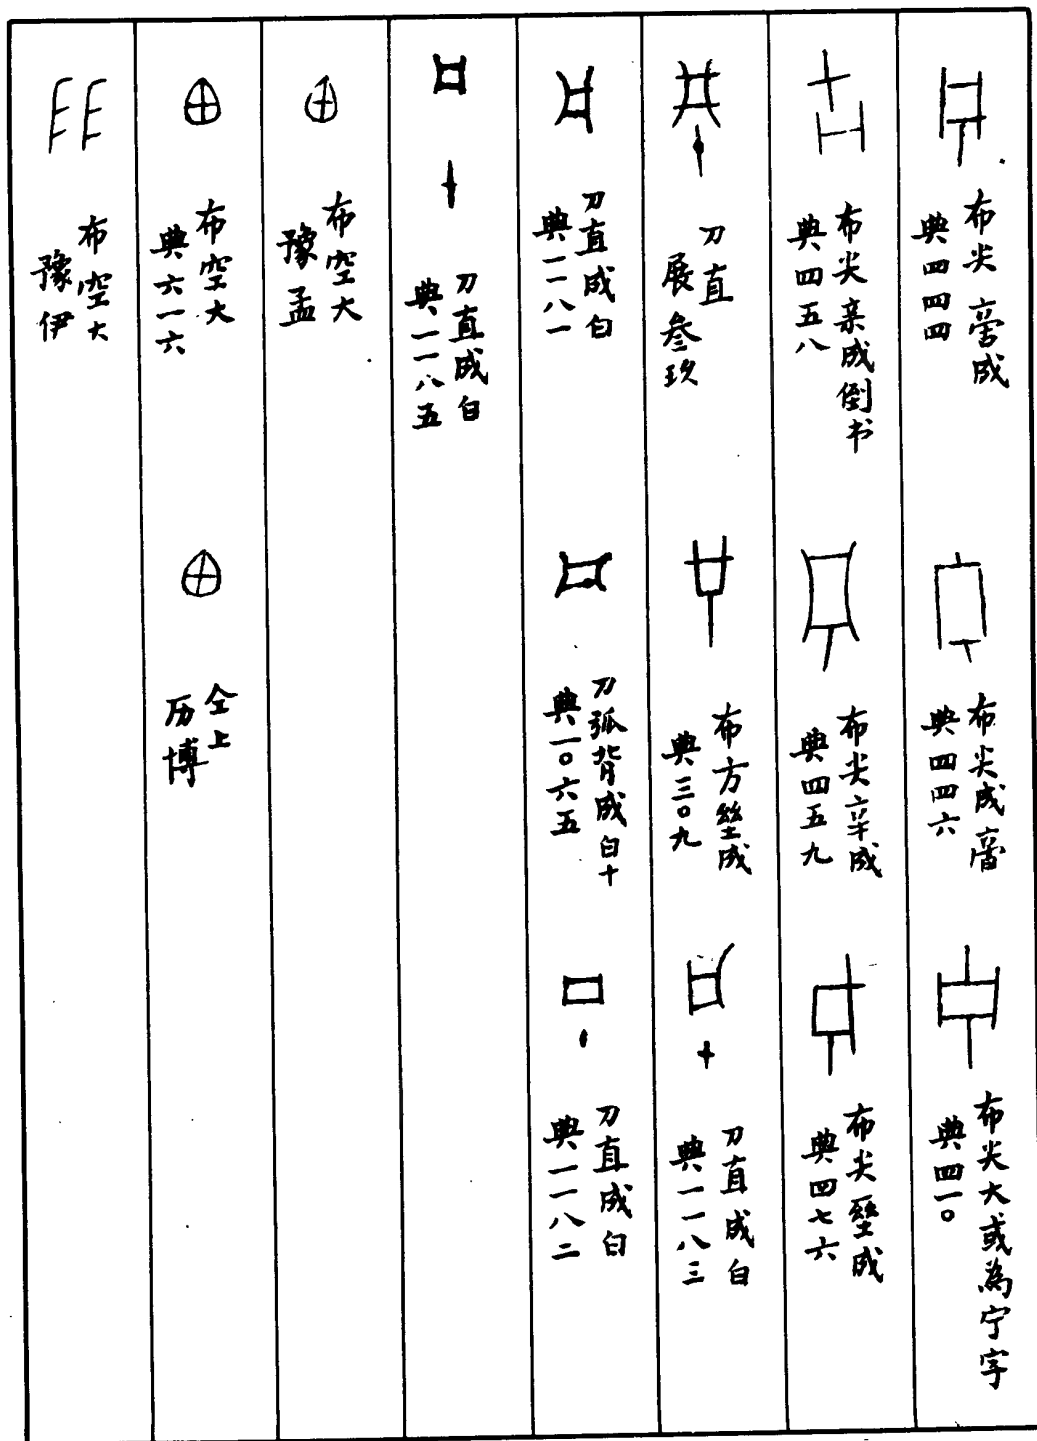 布尖 成
典四四四
布尖成
典四四六
布尖大或為宁字
典四一〇
布尖亲成倒书
典四五八
布尖辛成
典四五九
布尖 成
典四七六
刀直
展叁玖
布方 成
典三〇九
刀直成白
典一一八三
刀直成白
典一一八一
刀弧背成白十
典一〇六五
刀直成白
典一一八二
刀直成白
典一一八五
布空大
豫孟
布空大
典六一六
仝上
历博
布空大
豫伊